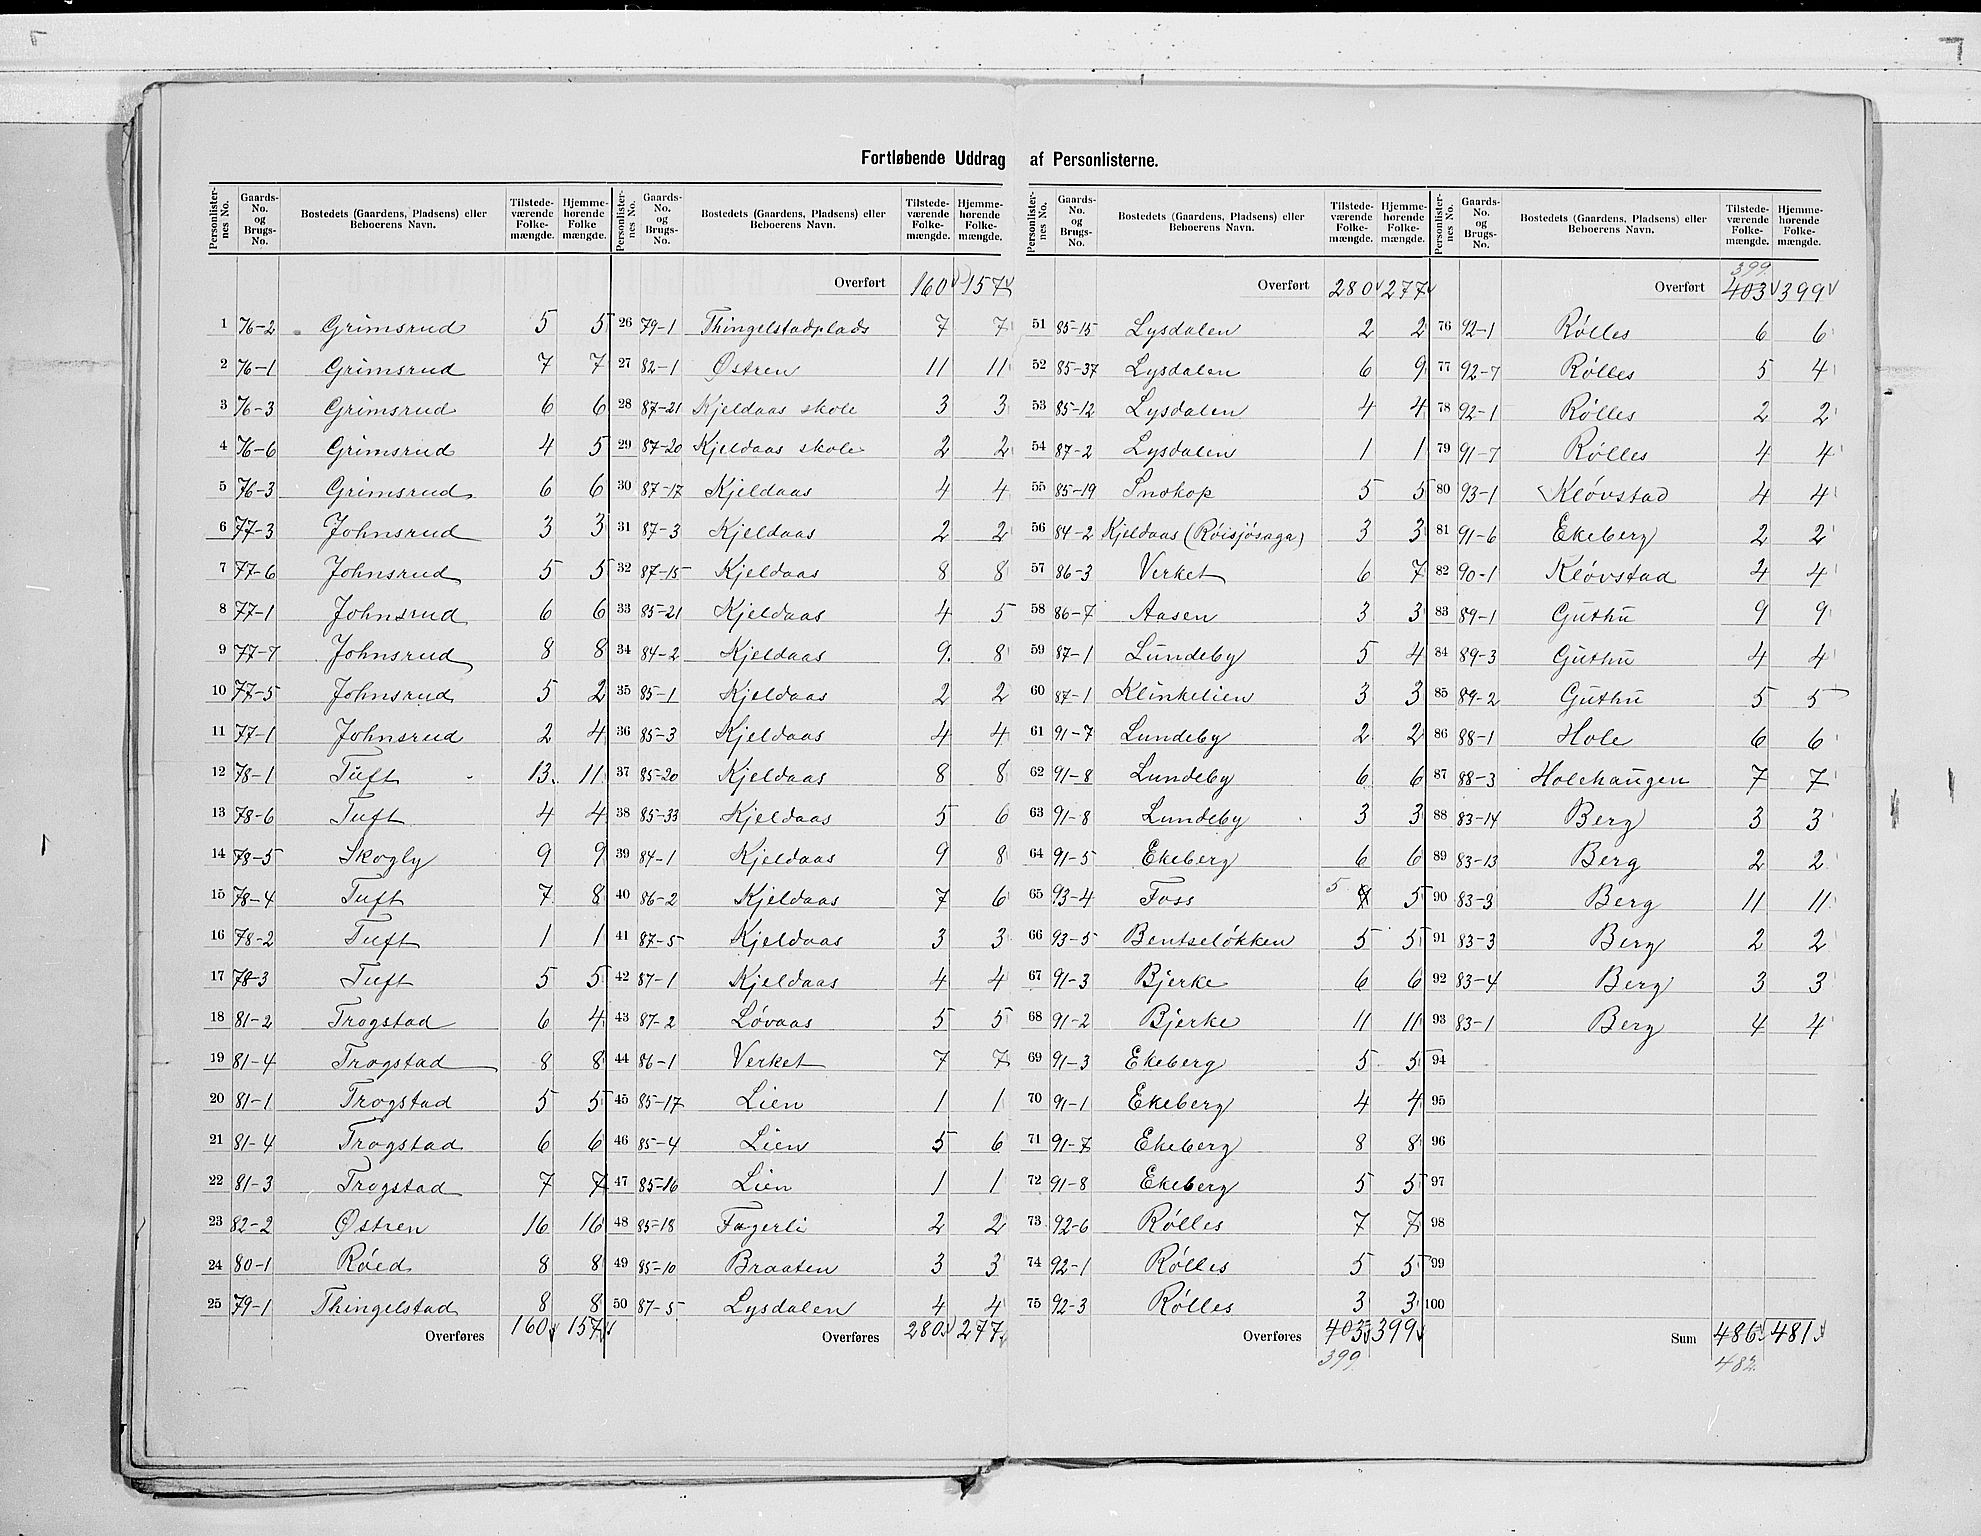 Fortløbende Uddrag af Personlisterne.
Personlisternes No. Gaards-No. og Brugs-No. Bostedets (Gaardens, Pladsens) eller Beboerens Navn. Tilstedeværende Folkemængde. Hjemmehørende Folkemængde.
1 76-2 Grimsrud 5 5
2 76-1 Grimsrud 7 7
3 76-3 Grimsrud 6 6
4 76-6 Grimsrud 4 5
5 76-3 Grimsrud 6 6
6 77-3 Johnsrud 3 3
7 77-6 Johnsrud 5 5
8 77-1 Johnsrud 6 6
9 77-7 Johnsrud 8 8
10 77-5 Johnsrud 5 2
11 77-1 Johnsrud 2 4
12 78-1 Tuft 13 11
13 78-6 Tuft 4 4
14 78-5 Skogly 9 9
15 78-4 Tuft 7 8
16 78-2 Tuft 1 1
17 78-3 Tuft 5 5
18 81-2 Trogstad 6 4
19 81-4 Trogstad 8 8
20 81-1 Trogstad 5 5
21 81-4 Trogstad 6 6
22 81-3 Trogstad 7 7
23 82-2 Østren 16 16
24 80-1 Røed 8 8
25 79-1 Thingelstad 8 8
Overføres 160 157
Personlisternes No. Gaards-No. og Brugs-No. Bostedets (Gaardens, Pladsens) eller Beboerens Navn. Tilstedeværende Folkemængde. Hjemmehørende Folkemængde.
Overført 160 157
26 79-1 Thingelstadplads 7 7
27 82-1 Østren 11 11
28 87-21 Kjeldaas skole 3 3
29 87-20 Kjeldaas skole 2 2
30 87-17 Kjeldaas 4 4
31 87-3 Kjeldaas 2 2
32 87-15 Kjeldaas 8 8
33 85-21 Kjeldaas 4 5
34 84-2 Kjeldaas 9 8
35 85-1 Kjeldaas 2 2
36 85-3 Kjeldaas 4 4
37 85-20 Kjeldaas 8 8
38 85-33 Kjeldaas 5 6
39 84-1 Kjeldaas 9 8
40 86-2 Kjeldaas 7 6
41 87-5 Kjeldaas 3 3
42 87-1 Kjeldaas 4 4
43 87-2 Løvaas 5 5
44 86-1 Verket 7 7
45 85-17 Lien 1 1
46 85-4 Lien 5 6
47 85-16 Lien 1 1
48 85-18 Fagerli 2 2
49 85-10 Braaten 3 3
50 87-5 Lysdalen 4 4
Overføres 280 277
Personlisternes No. Gaards-No. og Brugs-No. Bostedets (Gaardens, Pladsens) eller Beboerens Navn. Tilstedeværende Folkemængde. Hjemmehørende Folkemængde.
Overført 280 277
51 85-15 Lysdalen 2 2
52 85-37 Lysdalen 6 9
53 85-12 Lysdalen 4 4
54 87-2 Lysdalen 1 1
55 85-19 Snokop 5 5
56 84-2 Kjeldaas (Røisjøsaga) 3 3
57 86-3 Verket 6 7
58 86-7 Aasen 3 3
59 87-1 Lundeby 5 4
60 87-1 Klinkelien 3 3
61 91-7 Lundeby 2 2
62 91-8 Lundeby 6 6
63 91-8 Lundeby 3 3
64 91-5 Ekeberg 6 6
65 93-4 Foss 5 5
66 93-5 Bentseløkken 5 5
67 91-3 Bjerke 6 6
68 91-2 Bjerke 11 11
69 91-3 Ekeberg 5 5
70 91-1 Ekeberg 4 4
71 91-7 Ekeberg 8 8
72 91-8 Ekeberg 5 5
73 92-6 Rølles 7 7
74 92-1 Rølles 5 5
75 92-3 Rølles 3 3
Overføres 403 399
399
Personlisternes No. Gaards-No. og Brugs-No. Bostedets (Gaardens, Pladsens) eller Beboerens Navn. Tilstedeværende Folkemængde. Hjemmehørende Folkemængde.
399
Overført 403 399
76 92-1 Rølles 6 6
77 92-7 Rølles 5 4
78 92-1 Rølles 2 2
79 91-7 Rølles 4 4
80 93-1 Kløvstad 4 4
81 91-6 Ekeberg 2 2
82 90-1 Kløvstad 4 4
83 89-1 Guthu 9 9
84 89-3 Guthu 4 4
85 89-2 Guthu 5 5
86 88-1 Hole 6 6
87 88-3 Holehaugen 7 7
88 83-14 Berg 3 3
89 83-13 Berg 2 2
90 83-3 Berg 11 11
91 83-3 Berg 2 2
92 83-4 Berg 3 3
93 83-1 Berg 4 4
94
95
96
97
98
99
100
Sum 486 481
482